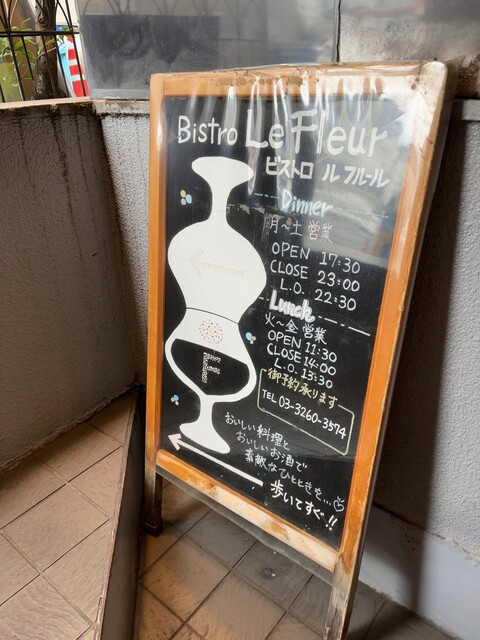 Bistro Le Fleur
ビストロ ル フルール
Dinner
月～土 営業
OPEN 17:30
CLOSE 23:00
L.O. 22:30
Lunch
火～金 営業
OPEN 11:30
CLOSE 14:00
L.O. 13:30
御予約承ります
TEL 03-3260-3574
おいしい料理と
おいしいお酒で
素敵なひとときを…
歩いてすぐ!!